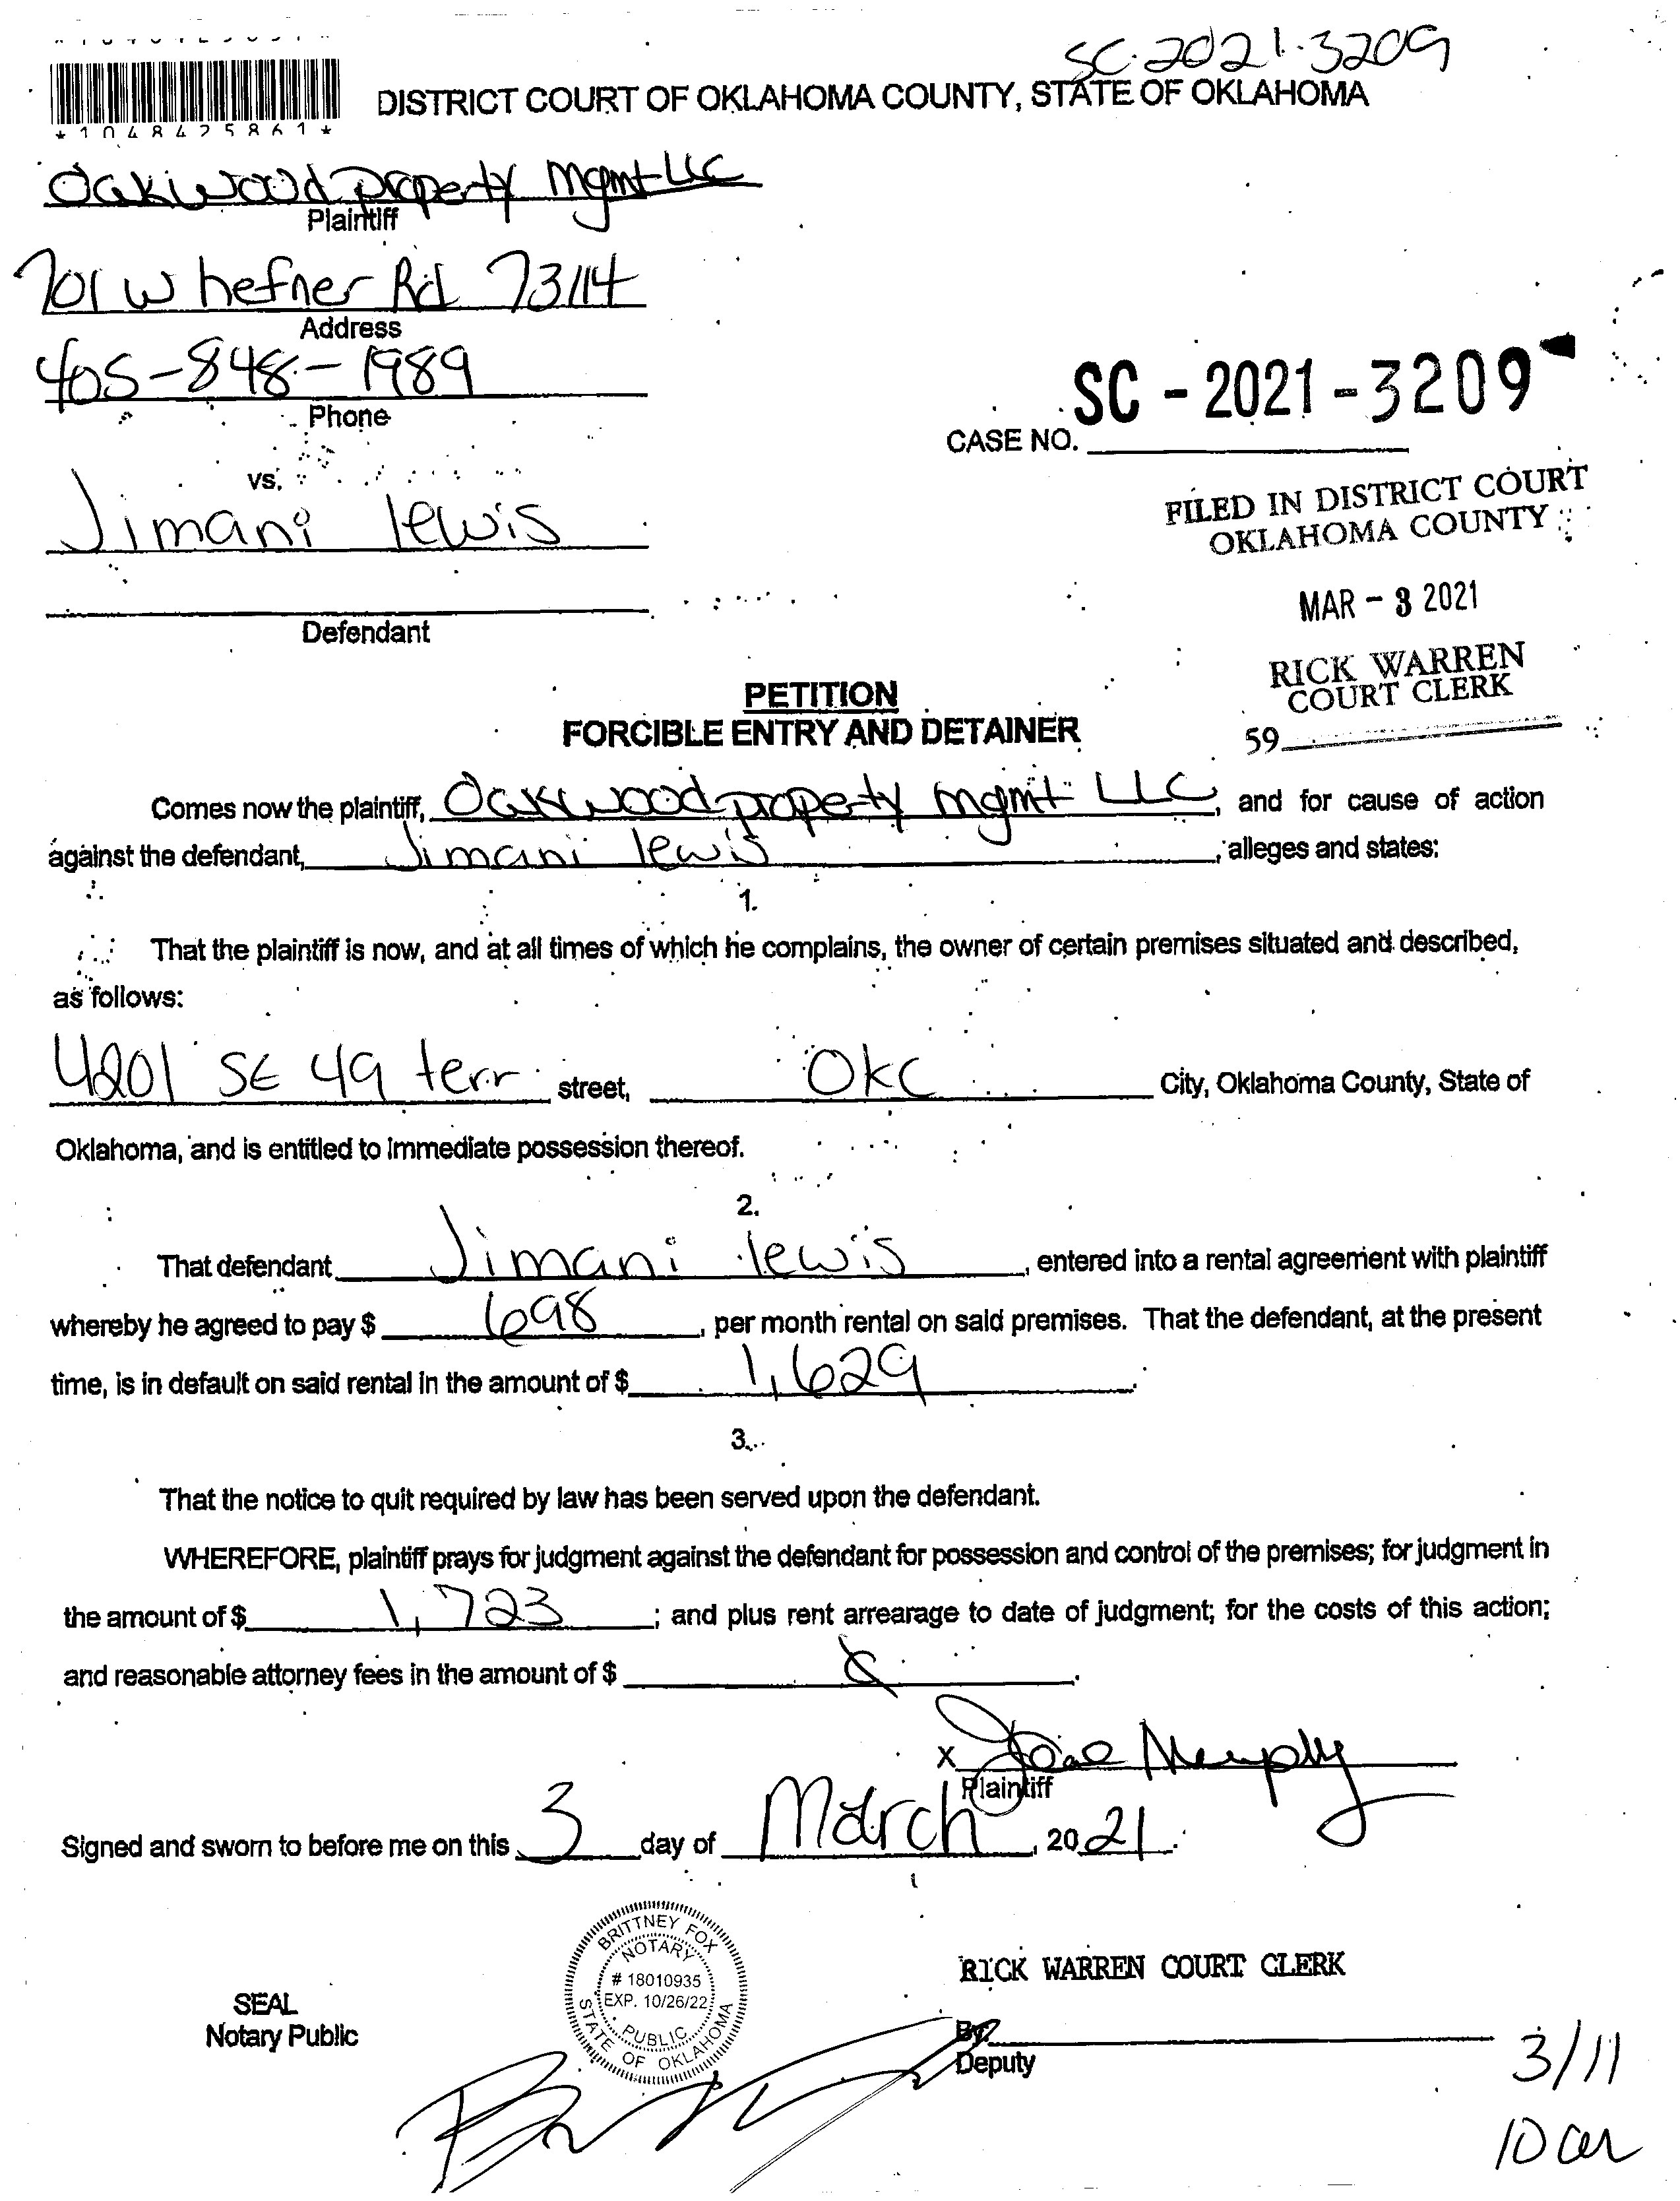 SC-2021-3209
DISTRICT COURT OF OKLAHOMA COUNTY, STATE OF OKLAHOMA
*1048425861*
Oakwood property mgmt LLC
Plaintiff
701 w hefner Rd 73114
Address
405-848-1989
Phone
SC - 2021 - 3209
CASE NO.
vs.
Jimani lewis
FILED IN DISTRICT COURT
OKLAHOMA COUNTY
MAR - 3 2021
Defendant
RICK WARREN
COURT CLERK
59
PETITION
FORCIBLE ENTRY AND DETAINER
Comes now the plaintiff, Oakwood property mgmt LLC, and for cause of action
against the defendant, Jimani lewis, alleges and states:
1.
That the plaintiff is now, and at all times of which he complains, the owner of certain premises situated and described,
as follows:
4201 SE 49 terr street, OKC City, Oklahoma County, State of
Oklahoma, and is entitled to immediate possession thereof.
2.
That defendant Jimani lewis, entered into a rental agreement with plaintiff
whereby he agreed to pay $ 698, per month rental on said premises. That the defendant, at the present
time, is in default on said rental in the amount of $ 1,629.
3.
That the notice to quit required by law has been served upon the defendant.
WHEREFORE, plaintiff prays for judgment against the defendant for possession and control of the premises; for judgment in
the amount of $ 1,723; and plus rent arrearage to date of judgment; for the costs of this action;
and reasonable attorney fees in the amount of $ .
X Murphy
Plaintiff
Signed and sworn to before me on this 3 day of March, 2021.
BRITTNEY FOX
NOTARY
# 18010935
EXP. 10/26/22
PUBLIC
STATE OF OKLAHOMA
RICK WARREN COURT CLERK
SEAL
Notary Public
By:
Deputy
3/11
10